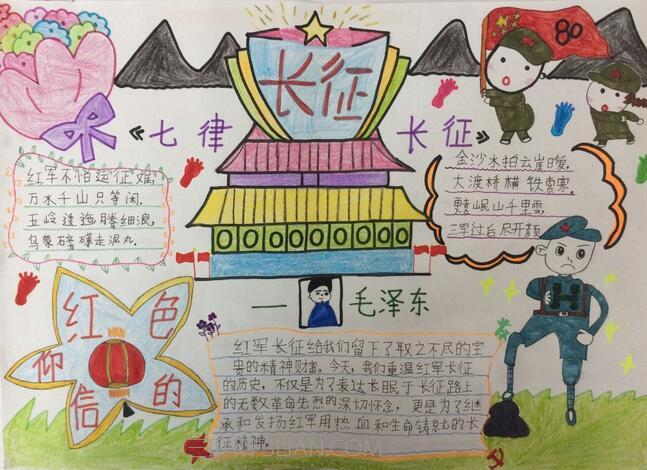 长征
80
《七律 长征》
红军不怕远征难,
万水千山只等闲,
五岭逶迤腾细浪,
乌蒙磅礴走泥丸.
金沙水拍云崖暖,
大渡桥横铁索寒,
更喜岷山千里雪,
三军过后尽开颜.
— 毛泽东
红色
的
信
仰
H
红军长征给我们留下了取之不尽的宝
贵的精神财富。今天,我们重温红军长征
的历史,不仅是为了表达长眠于长征路上
的无数革命先烈的深切怀念,更是为了继
承和发扬红军用热血和生命铸就的长
征精神。